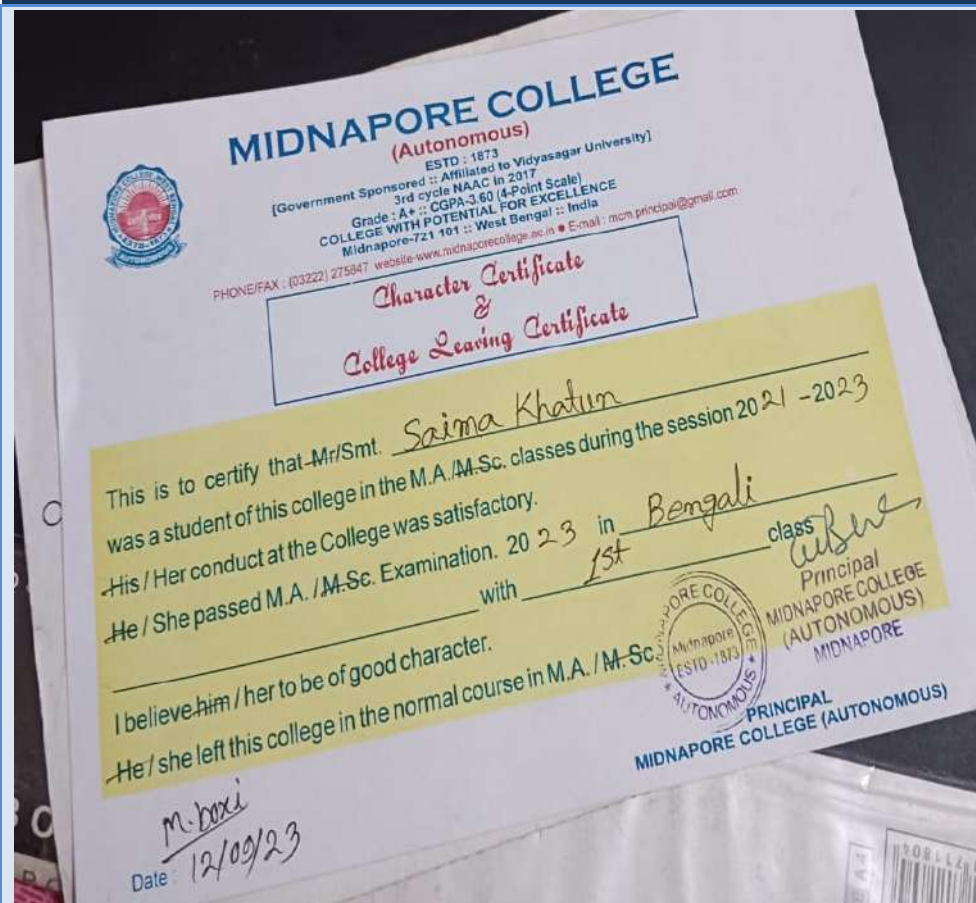 MIDNAPORE COLLEGE
(Autonomous)
ESTD : 1873
[Government Sponsored :: Affiliated to Vidyasagar University]
3rd cycle NAAC in 2017
Grade : A+ :: CGPA-3.60 (4-Point Scale)
COLLEGE WITH POTENTIAL FOR EXCELLENCE
Midnapore-721 101 :: West Bengal :: India
PHONE/FAX : (03222) 275847 website-www.midnaporecollege.ac.in ● E-mail : mcm.principal@gmail.com
Character Certificate
&
College Leaving Certificate
This is to certify that Mr/Smt. Saima Khatun
was a student of this college in the M.A./M.Sc. classes during the session 2021 - 2023
His / Her conduct at the College was satisfactory.
He / She passed M.A. / M.Sc. Examination. 2023 in Bengali
with 1st class
I believe him / her to be of good character.
He / she left this college in the normal course in M.A. / M.Sc.
Principal
MIDNAPORE COLLEGE
(AUTONOMOUS)
MIDNAPORE
MIDNAPORE COLLEGE
Midnapore
ESTD-1873
AUTONOMOUS
PRINCIPAL
MIDNAPORE COLLEGE (AUTONOMOUS)
M. boxi
Date : 12/09/23